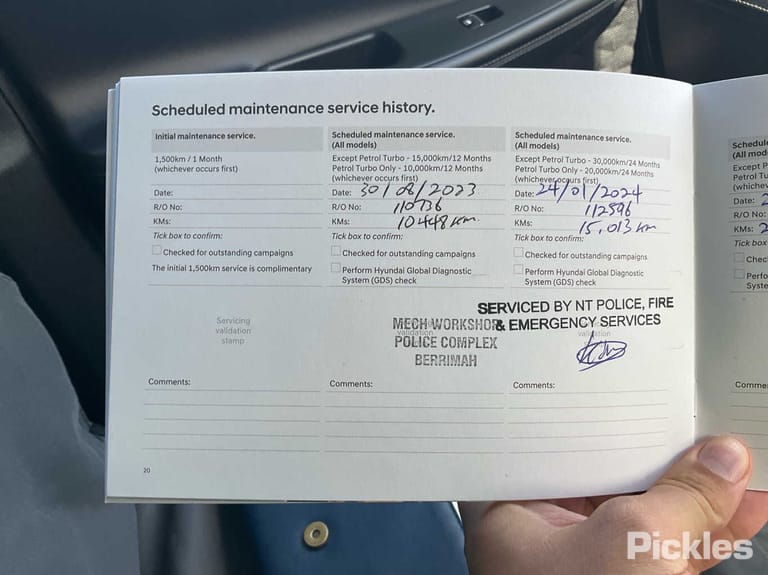 Scheduled maintenance service history.
Initial maintenance service.
1,500km / 1 Month
(whichever occurs first)
Date:
R/O No:
KMs:
Tick box to confirm:
Checked for outstanding campaigns
The initial 1,500km service is complimentary
Servicing
validation
stamp
Comments:
20
Scheduled maintenance service.
(All models)
Except Petrol Turbo - 15,000km/12 Months
Petrol Turbo Only - 10,000km/12 Months
(whichever occurs first)
Date: 30/08/2023
R/O No: 110736
KMs: 10448 km.
Tick box to confirm:
Checked for outstanding campaigns
Perform Hyundai Global Diagnostic
System (GDS) check
MECH WORKSHOP
validation
POLICE COMPLEX
BERRIMAH
Comments:
Scheduled maintenance service.
(All models)
Except Petrol Turbo - 30,000km/24 Months
Petrol Turbo Only - 20,000km/24 Months
(whichever occurs first)
Date: 24/01/2024
R/O No: 112596
KMs: 15,013 km
Tick box to confirm:
Checked for outstanding campaigns
Perform Hyundai Global Diagnostic
System (GDS) check
SERVICED BY NT POLICE, FIRE
& EMERGENCY SERVICES
validation
stamp
Comments:
(All
Except
Petrol
Date:
R/O No:
KMs:
Tick box
Pickles